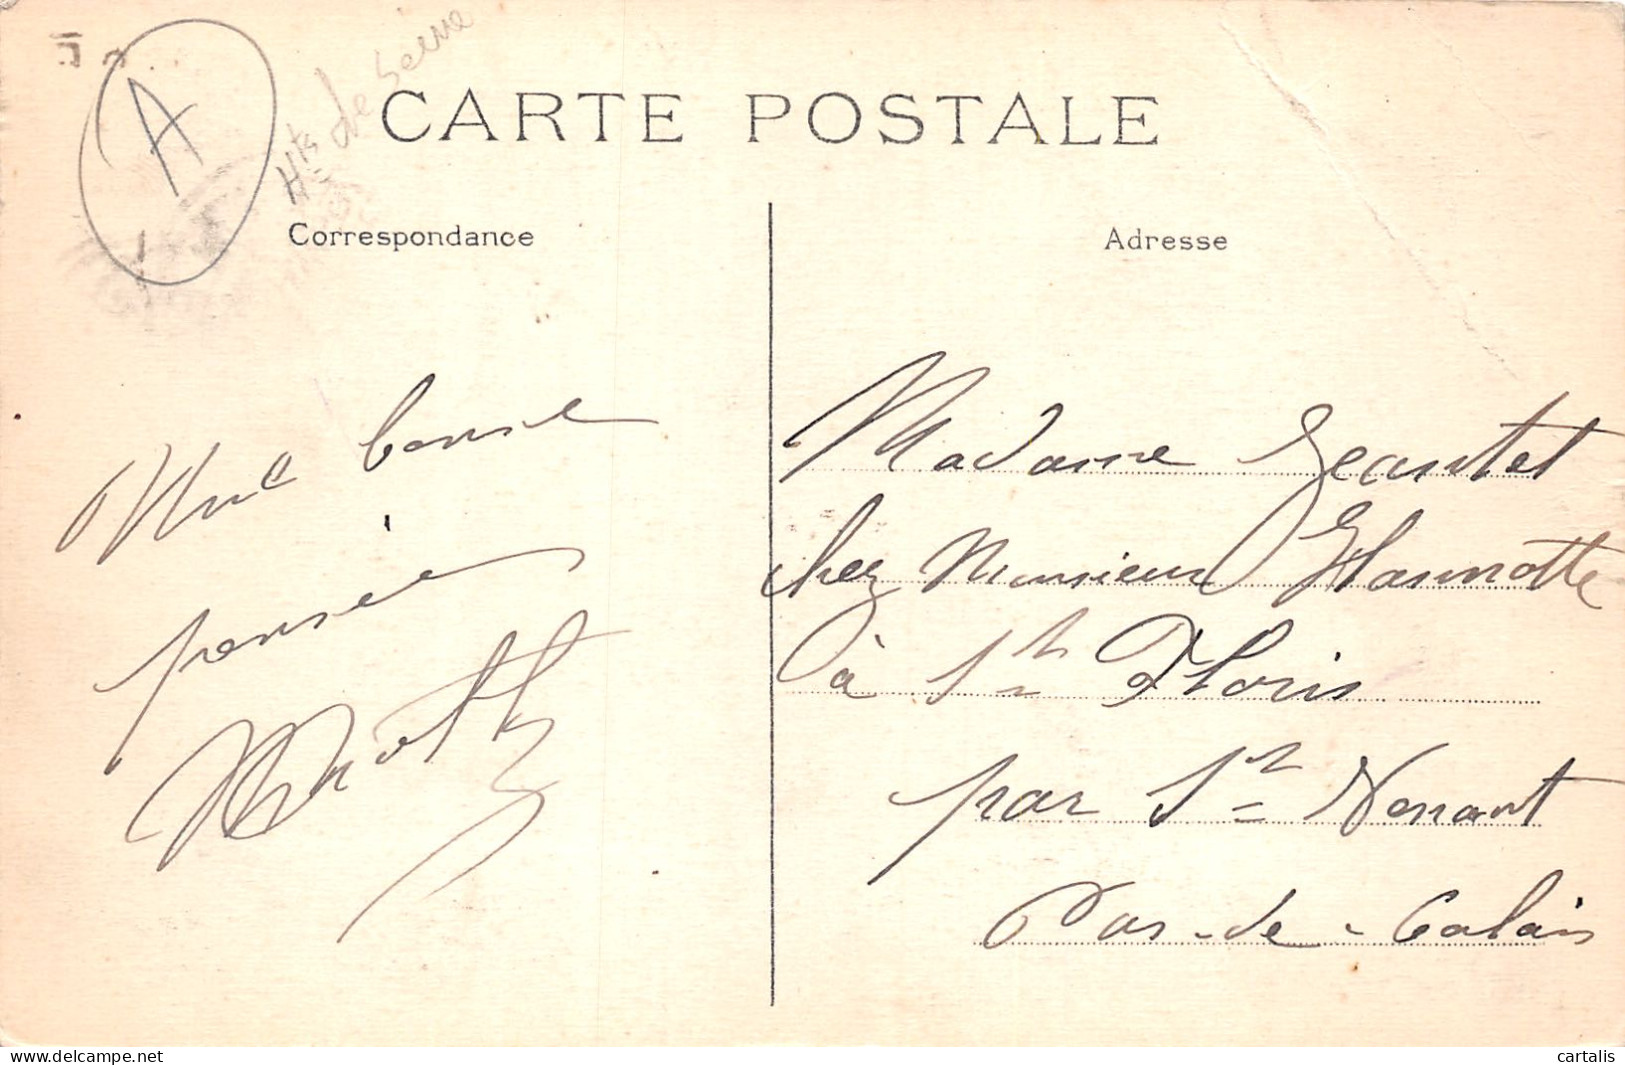 A
Hts de Seine
CARTE POSTALE
Correspondance
Adresse
Mille bonne
pensée
Madame Jeantet
chez Monsieur
à St Floris
par St Venant
Pas-de-Calais
www.delcampe.net
cartalis